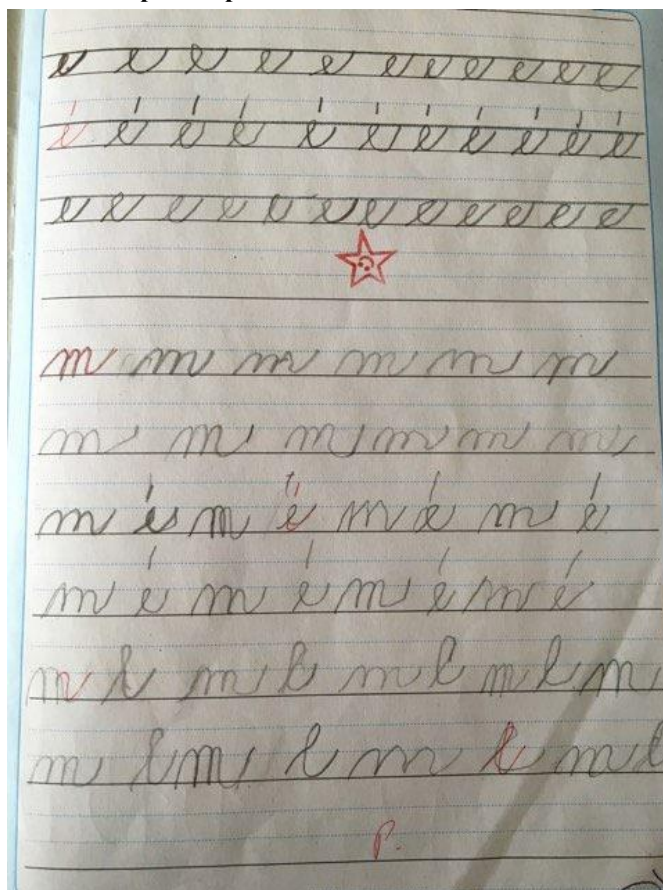 e e e e e e e e e e e
é é é é é é é é é é é
e e e e e e e e e e e e
m m m m m m
m m m m m m
m é m é m é m é
m é m é m é m é
m l m l m l m l m
m l m l m l m l
P.